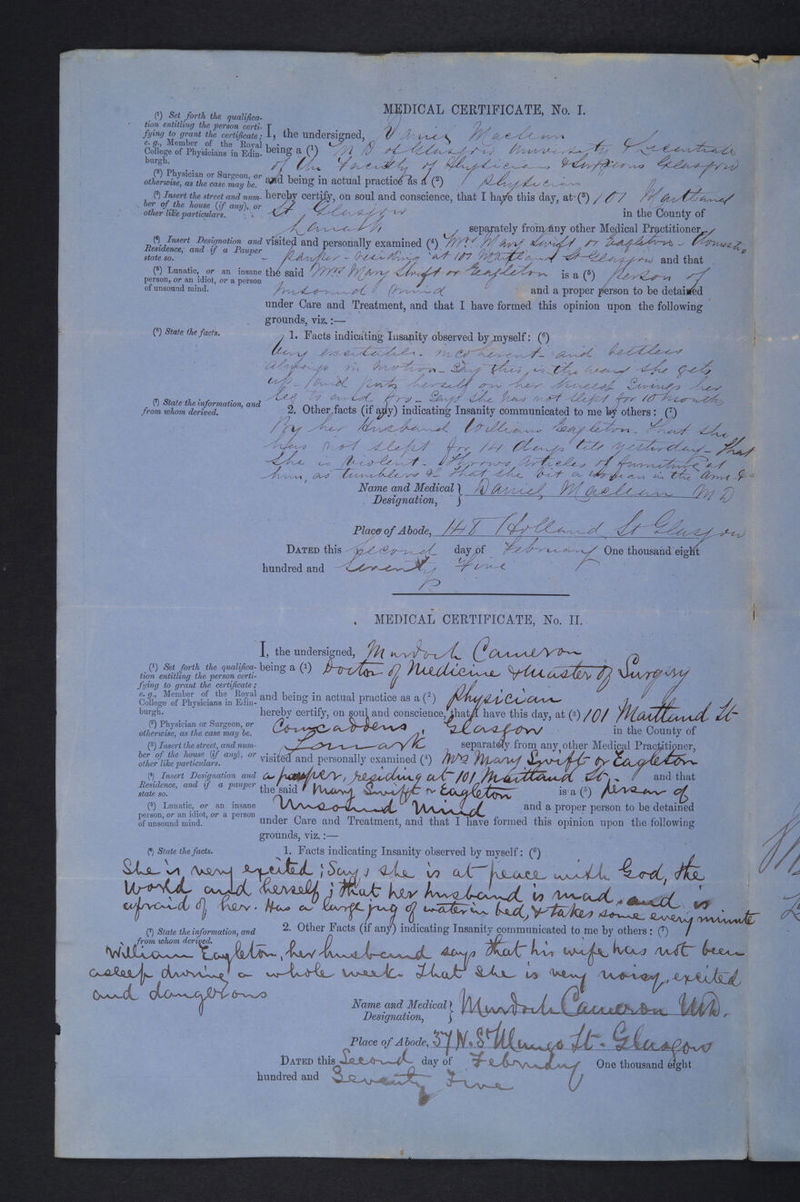 MEDICAL CERTIFICATE, No. I.
(¹) Set forth the qualifica-
tion entitling the person certi-
fying to grant the certificate;
e. g., Member of the Royal
College of Physicians in Edin-
burgh.
(²) Physician or Surgeon, or
otherwise, as the case may be.
(³) Insert the street and num-
ber of the house (if any), or
other like particulars.
(⁴) Insert Designation and
Residence, and if a Pauper
state so.
(⁵) Lunatic, or an insane
person, or an idiot, or a person
of unsound mind.
(⁶) State the facts.
(⁷) State the information, and
from whom derived.
I, the undersigned, Daniel Maclean
being a (¹) M D of Glasgow University & Licentiate
of the Faculty of Physicians & Surgeons Glasgow
and being in actual practice as a (²) Physician
hereby certify, on soul and conscience, that I have this day, at (³) 101 Maitland
St Glasgow in the County of
Lanark separately from any other Medical Practitioner,
visited and personally examined (⁴) Mrs Mary Swift or Eagleton - Domestic
Pauper - residing at 101 Maitland St Glasgow and that
the said Mrs Mary Swift or Eagleton is a (⁵) person of
unsound mind and a proper person to be detained
under Care and Treatment, and that I have formed this opinion upon the following
grounds, viz.:—
1. Facts indicating Insanity observed by myself: (⁶)
Very excitable. incoherent and restless
always in motion - Say this in the
up - and herself on her Swings her
leg to and fro - Says she has not slept for 10 months
2. Other facts (if any) indicating Insanity communicated to me by others: (⁷)
By her Husband William Eagleton that she
has not slept for 14 days till yesterday - That
She is Violent - Throws Articles of furniture at
him, as tumblers & that she bit a in the arm &c
Name and Medical Designation, Daniel Maclean M D
Place of Abode, 148 Holland St Glasgow
DATED this Second day of February One thousand eight
hundred and Seventy Five
MEDICAL CERTIFICATE, No. II.
(¹) Set forth the qualifica-
tion entitling the person certi-
fying to grant the certificate;
e. g., Member of the Royal
College of Physicians in Edin-
burgh.
(²) Physician or Surgeon, or
otherwise, as the case may be.
(³) Insert the street, and num-
ber of the house (if any), or
other like particulars.
(⁴) Insert Designation and
Residence, and if a pauper
state so.
(⁵) Lunatic, or an insane
person, or an idiot, or a person
of unsound mind.
(⁶) State the facts.
(⁷) State the information, and
from whom derived.
I, the undersigned, Murdoch Cameron
being a (¹) Doctor of Medicine & Master of Surgery
and being in actual practice as a (²) Physician
hereby certify, on soul and conscience, that I have this day, at (³) 101 Maitland St
Cowcaddens, Glasgow in the County of
Lanark separately from any other Medical Practitioner,
visited and personally examined (⁴) Mrs Mary Swift or Eagleton
a pauper, residing at 101 Maitland St. and that
the said Mary Swift or Eagleton is a (⁵) person of
Unsound Mind and a proper person to be detained
under Care and Treatment, and that I have formed this opinion upon the following
grounds, viz.:—
1. Facts indicating Insanity observed by myself: (⁶)
She is very excited; Says she is at peace with God, the
World and herself; that her husband is mad, and is
afraid of her. Has a large jug of water in bed, & takes some every minute
2. Other Facts (if any) indicating Insanity communicated to me by others: (⁷)
William Eagleton, her husband says that his wife has not been
asleep during a whole week. That she is very noisy, excited
and dangerous
Name and Medical Designation, Murdoch Cameron MD.
Place of Abode, 37 N. St Mungo St. Glasgow
DATED this Second day of February One thousand eight
hundred and Seventy Five